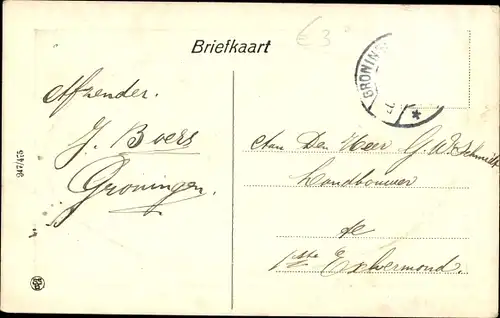 € 3
Briefkaart
GRONIN
Afzender.
J. Boers
Groningen.
947/475
Aan Den Heer G. W. Schmidt
Landbouwer
te
1ste Exloërmond.